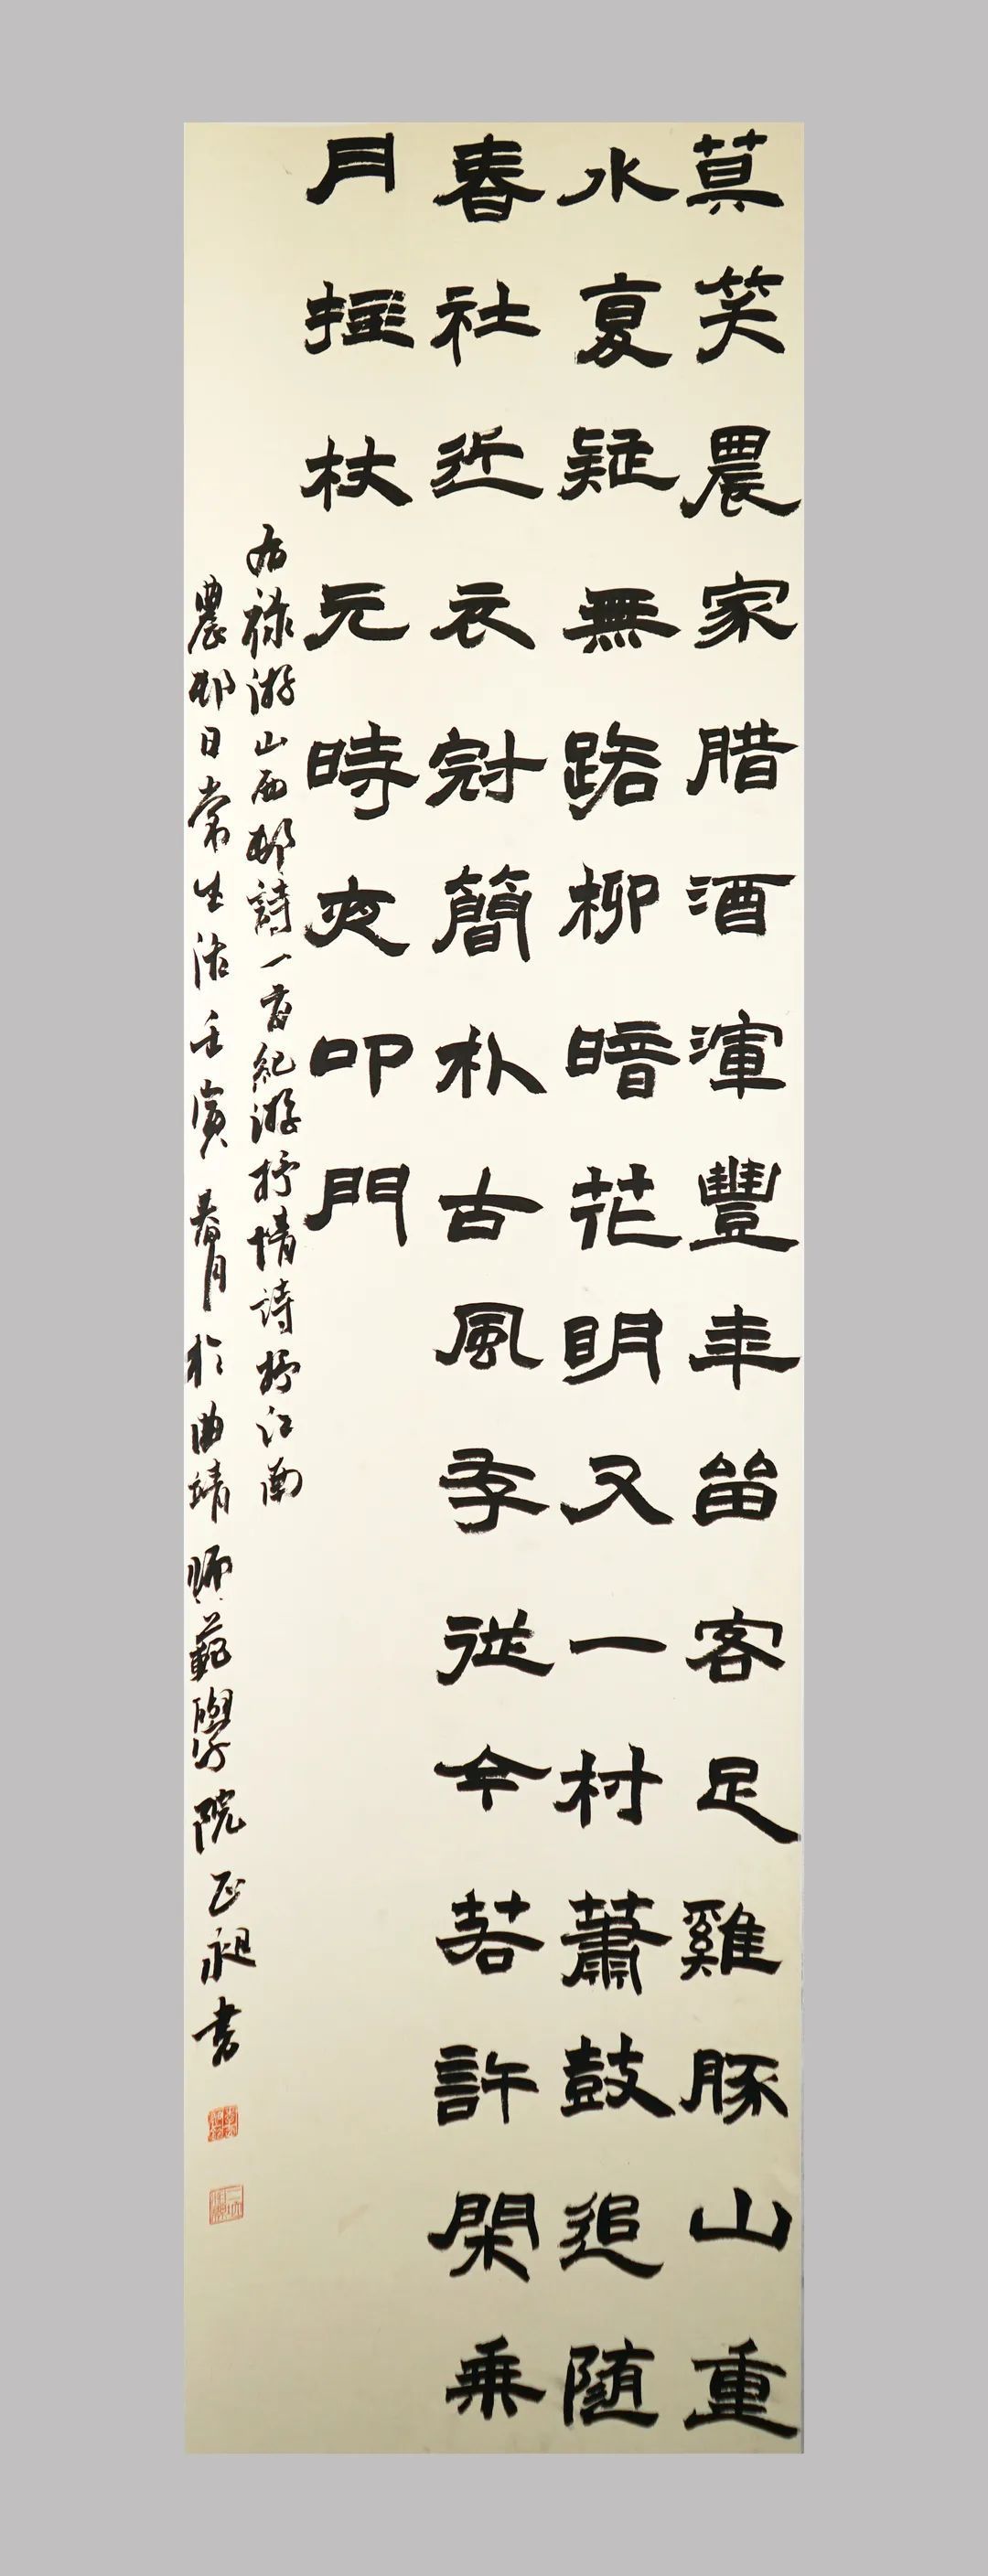 莫笑農家腊酒渾豐年留客足雞豚山重
水复疑無路柳暗花明又一村蕭鼓追随
春社近衣冠簡朴古風存從今若許閑乘
月拄杖无時夜叩門
右禄游山西邨詩一首紀游抒情詩抒江南
農邨日常生活壬寅春月於曲靖師範學院正昶書